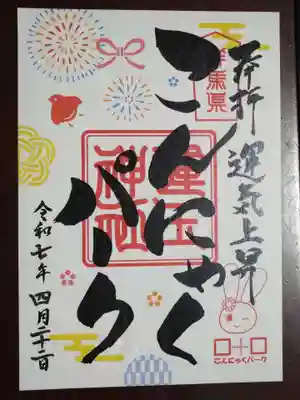 奉拝 運気上昇
群馬県
こんにゃく
パーク
運玉
神社
令和七年 四月二十二日
こんにゃくパーク